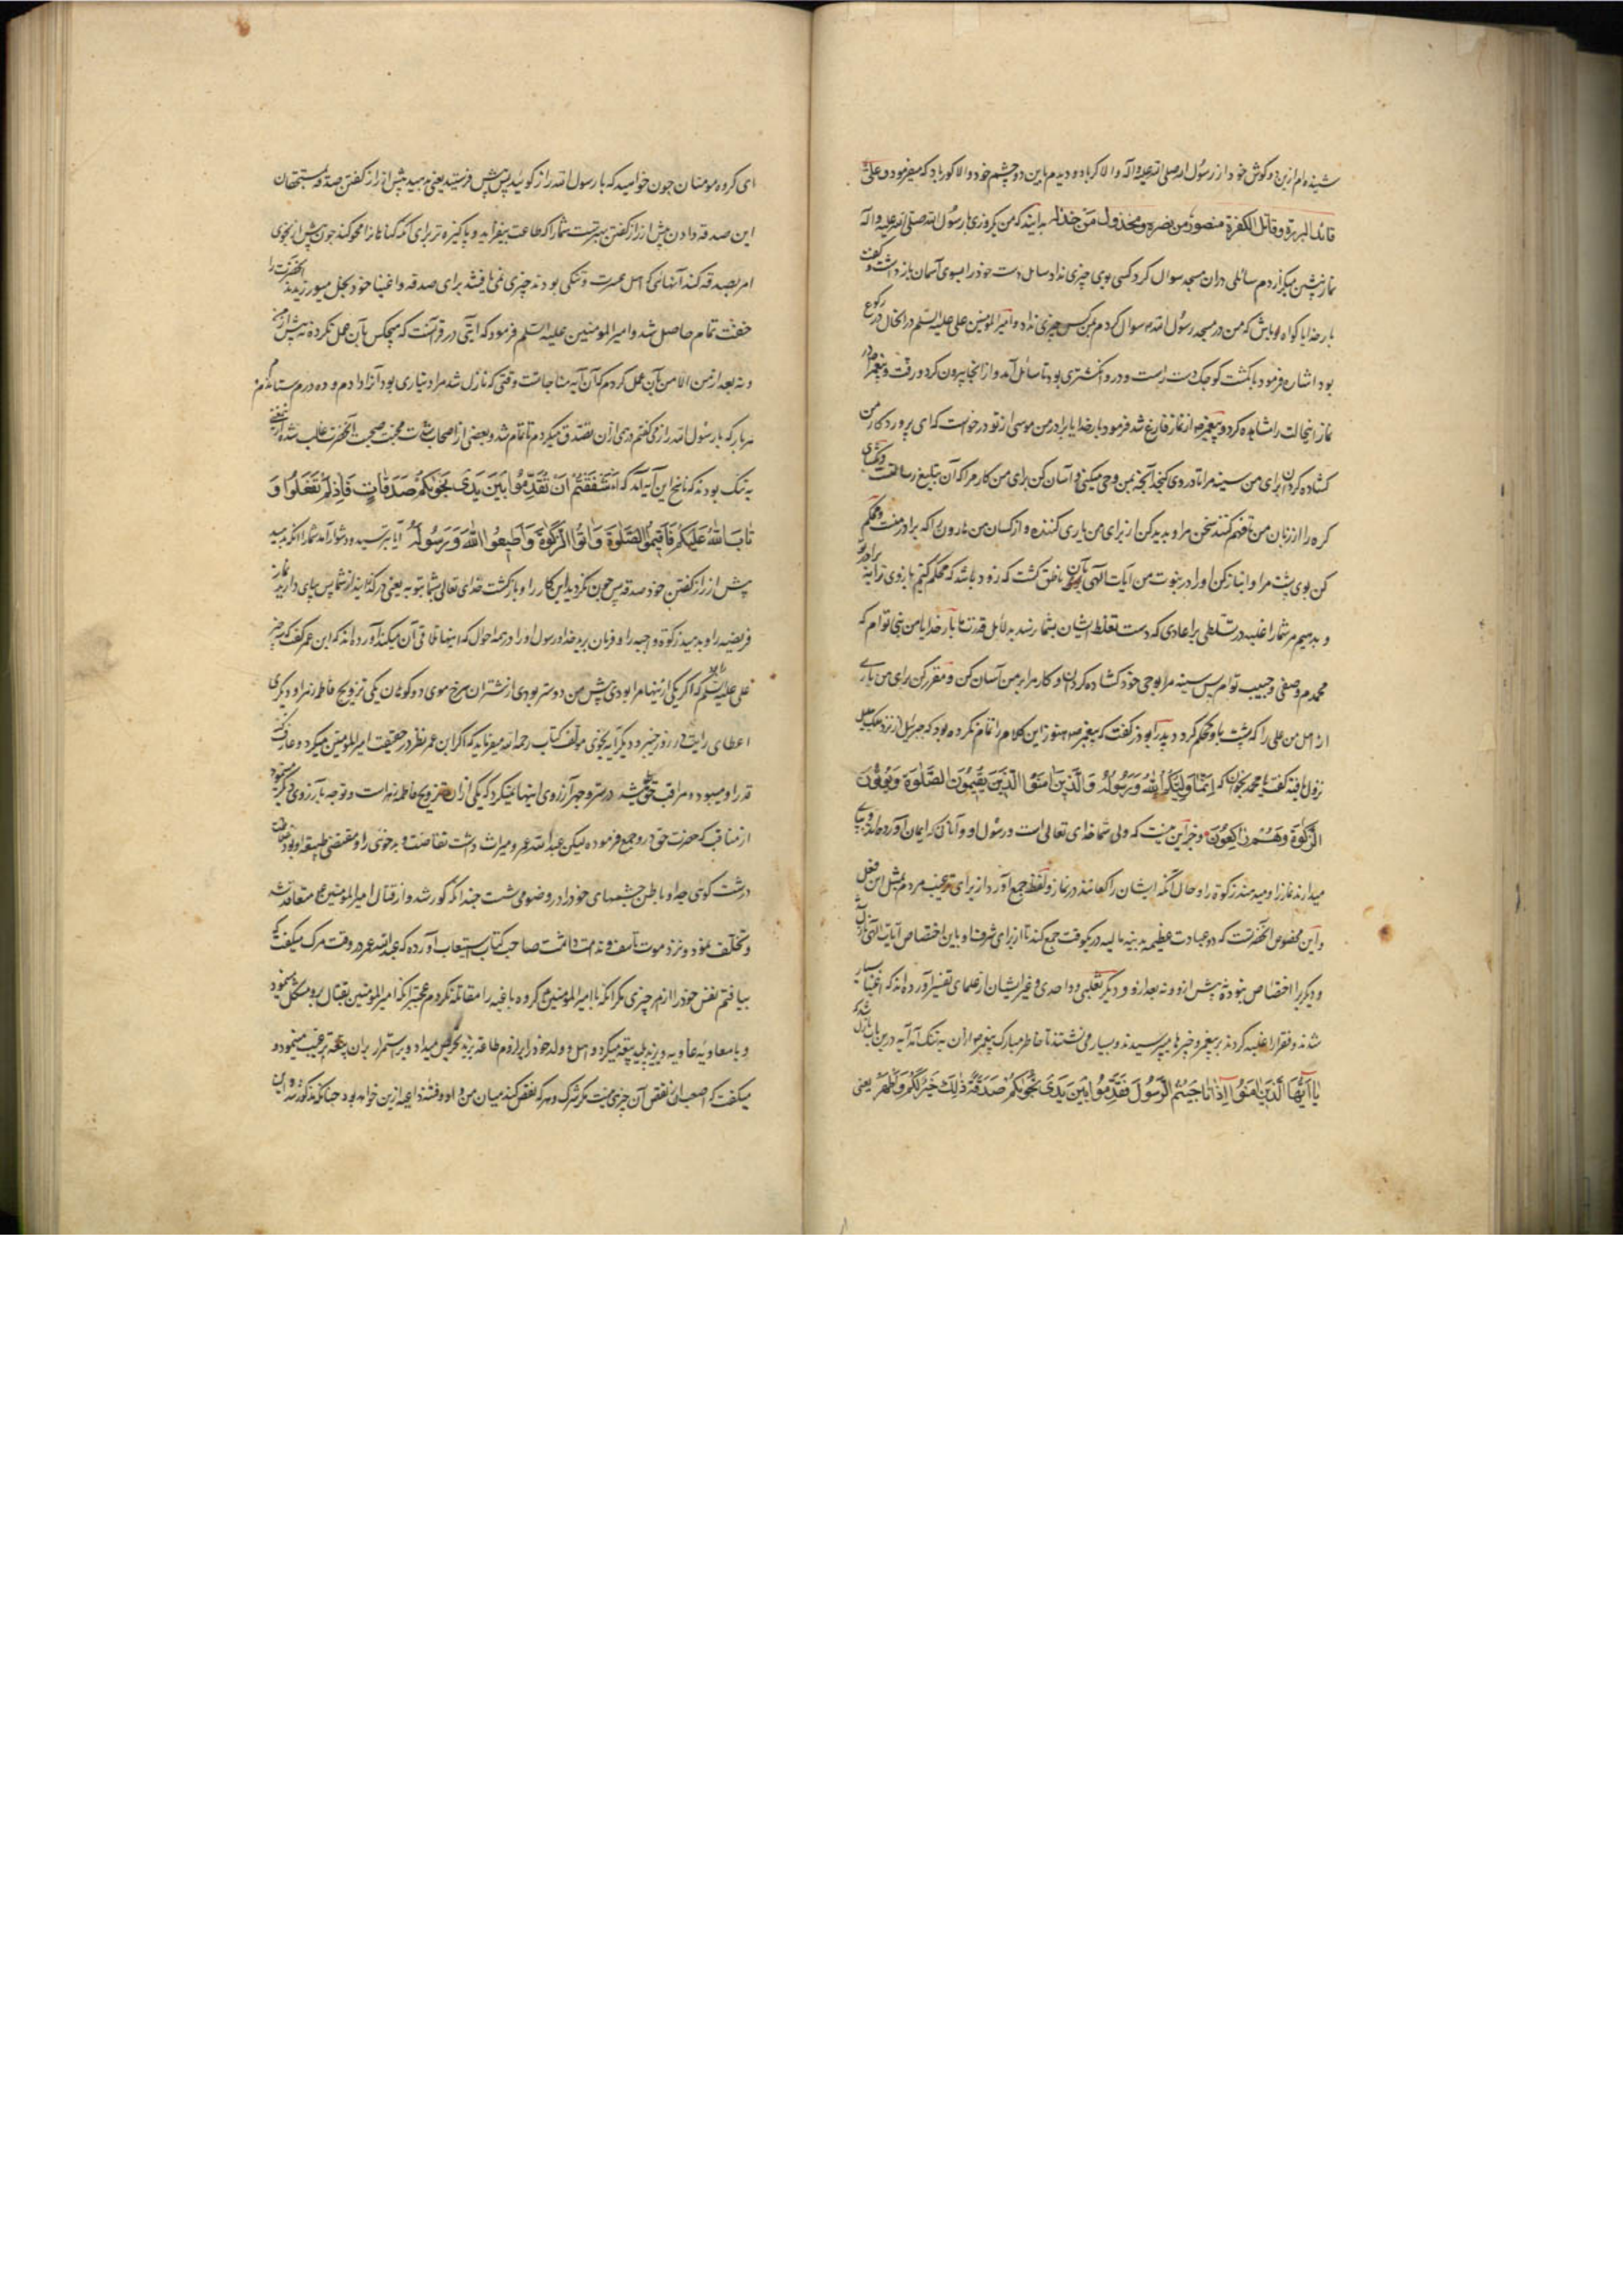 شنیده‌ام ازین دو گوش خود از رسول الله صلی الله علیه و اله والا کر باد و دیدم باین دو چشم خود والا کور باد که میفرمود و علی
قائد البررة و قاتل الکفرة منصور من نصره و مخذول من خذله بدانید که من یکروزی با رسول الله صلی الله علیه و آله
نماز پیشین میگزاردم سائلی در آن مسجد سوال کرد کسی بوی چیزی نداد سایل دست خود را بسوی آسمان بازداشت و گفت
بار خدایا گواه باش که من در مسجد رسول الله سوال کردم هیچ کس چیزی نداد و امیر المومنین علی علیه السلم در آنحال در رکوع
بود اشاره فرمود بانگشت کوچک دست راست و درو انگشتری بود تا سائل آمد و از آنجا بیرون کرد و رفت و پیغمبر در
نماز اینحالت را مشاهده کرد و پیغمبر چو از نماز فارغ شد فرمود بار خدایا برادر من موسی از تو درخواست که ای پروردگار من
گشاده گردان برای من سینه مرا تا در وی گنجد آنچه بمن وحی میکنی و آسان کن برای من کار مرا که آن تبلیغ رسالتست و بگشای
گره را از زبان من تا فهم کنند سخن مرا و پدید کن از برای من یاری کننده از کسان من هارون را که برادر منست و محکم
کن بوی پشت مرا و انباز کن او را در نبوت من آیات الهی بآن ناطق گشت که زود باشد که محکم کنیم بازوی ترا به برادر تو
و بدهیم مر شما را غلبه و تسلطی بر اعادی که دست تغلب ایشان بشما نرسد بدلایل قدرت ما بار خدایا من نبی توام که
محمدم و صفی و حبیب توام پس سینه مرا بوحی خود گشاده گردان و کار مرا بر من آسان کن و مقرر کن برای من یاری
از اهل من علی را که پشت باو محکم گردد پدید ابوذر گفت که پیغمبر هنوز این کلام را تمام نکرده بود که جبرئیل از نزد ملک جلیل
نزول یافته گفت یا محمد بخوان که اِنَّمَا وَلِیُّکُمُ اللّٰهُ وَرَسُولُهُ وَالَّذِینَ اٰمَنُوا الَّذِینَ یُقِیمُونَ الصَّلٰوةَ وَیُؤْتُونَ
الزَّکٰوةَ وَهُمْ رَاکِعُونَ و جز این نیست که ولی شما خدای تعالی است و رسول او و آنان که ایمان آورده‌اند و بپای
میدارند نماز را و میدهند زکوة را و حال آنکه ایشان راکعانند در نماز و لفظ جمع آورد از برای ترغیب مردم بمثل این فعل
و این مخصوص آنحضرتست که دو عبادت عظیمه بدنیه مالیه در یکوقت جمع کند تا از برای شرف او باین اختصاص آیات الهی نازل
و دیگر برا اختصاص نبوده پیش ازو و نه بعد ازو و دیگر ثعلبی و واحدی و غیر ایشان از علمای تفسیر آورده‌اند که اغنیا بسیار
شدند و فقرا را غلبه کردند بر پیغمبر و خبرها میپرسیدند و بسیار می نشستند تا خاطر مبارک پیغمبر از آن به تنگ آمد آیه درین باب نازل شد که
یٰا اَیُّهَا الَّذِینَ اٰمَنُوا اِذٰا نٰاجَیْتُمُ الرَّسُولَ فَقَدِّمُوا بَیْنَ یَدَیْ نَجْوٰیکُمْ صَدَقَةً ذٰلِکَ خَیْرٌ لَکُمْ وَاَطْهَرُ یعنی
ای گروه مومنان چون خواهید که با رسول الله راز گوئید پس پیش فرستید یعنی بدهید پیش از راز گفتن صدقه بمستحقان
این صدقه دادن پیش از راز گفتن بهترست شما را که طاعت بیفزاید و پاکیزه تر برای آنکه گناهان را محو کند چون پیش از نجوی
امر بصدقه کند آنهائی که اهل عسرت و تنگی بودند چیزی نمی یافتند برای صدقه و اغنیا خود بخل میورزیدند آنحضرت را
خفت تمام حاصل شد و امیر المومنین علیه السلم فرمود که آیتی در قرآنست که هیچکس بآن عمل نکرده نه پیش از من
و نه بعد از من الا من بآن عمل کردم که آن آیه مناجاتست وقتی که نازل شد مرا دیناری بود آنرا دادم و ده درم ستاندم
هر بار که با رسول الله راز میگفتم درمی از آن تصدق میکردم تا تمام شد و بعضی از اصحاب محبت صحبت آنحضرت غالب شده
به تنگ بودند که ناسخ این آیه آمد که ءَاَشْفَقْتُمْ اَنْ تُقَدِّمُوا بَیْنَ یَدَیْ نَجْوٰیکُمْ صَدَقٰاتٍ فَاِذْ لَمْ تَفْعَلُوا وَ
تٰابَ اللّٰهُ عَلَیْکُمْ فَاَقِیمُوا الصَّلٰوةَ وَاٰتُوا الزَّکٰوةَ وَاَطِیعُوا اللّٰهَ وَرَسُولَهُ آیا بترسیدید و دشوار آمد شما را آنکه بدهید
پیش از راز گفتن خود صدقه پس چون نکردید این کار را و بازگشت خدای تعالی بشما بتوبه یعنی درگذرانید از شما پس بپای دارید نماز
فریضه را و بدهید زکوة واجبه را و فرمان برید خدا و رسول او را در همه احوال آورده‌اند که ابن عمر گفت که
علی علیه السلم که اگر یکی از اینها مرا بودی پیش من دوستر بودی از شتران سرخ موی یکی تزویج فاطمه زهرا و دیگری
اعطای رایت در روز خیبر و دیگر آیه نجوی مولف کتاب رحمه الله میفرماید که اگر ابن عمر نظر در حقیقت امیر المومنین میکرد و عارف
قدر او میبود و مراقب حق میشد در سر و جهر آرزوی اینها نمیکرد که یکی از آن تزویج فاطمه زهراست و توجه بآرزوی دیگر
از مناقب که حضرت حق درو جمع فرموده لیکن عبد الله عمر و میراث داشت و بدخوئی را و مقتضی طبیعه او بود
درشت گوی جد او باطن چشمهای خود را در وضو می شست چندانکه کور شد و از قتال امیر المومنین متقاعد شد
و تخلف نمود و نزد موت تاسف و ندامت داشت صاحب کتاب استیعاب آورده که عبد الله عمر در وقت مرگ میگفت که
نیافتم نفس خود را از هر چیزی مگر آنکه با امیر المومنین گروه باغیه را مقاتله نکردم عجبتر آنکه امیر المومنین بقتال برو مشکل مینمود
و با معاویه غاویه و یزید پلید بیعه میکرد و اهل و ولد خود را بر لزوم طاعة یزید تحریض میداد و بر استمرار بر آن بیعه ترغیب مینمود و
میگفت که نقض آن چیزی نیست مگر شرک و هر که نقض کند میان من و او چنانکه مذکور شد